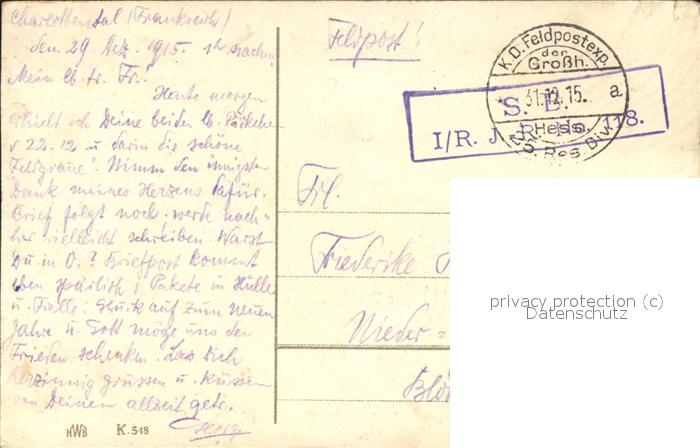 Charlottental (Frankreich)
Den 29. Dez. 1915.
Mein lb. tr. Fr.!
Heute morgen
erhielt ich Deine beiden lb. Päckchen
v 22.12 u. darin die schöne
"Feldgraue". Nimm den innigsten
Dank meines Herzens dafür.
Brief folgt noch. werde nach-
her vielleicht schreiben. Warst
Du in O.? Briefpost kommt
eben spärlich; Pakete in Hülle
u. Fülle. Glück auf zum neuen
Jahre u. Gott möge uns den
Frieden schenken. Lass Dich
herzinnig grüssen u. küssen
von Deinem allzeit getr.
Georg
HWB K.518
Feldpost!
K.D. Feldpostexp.
der
Großh.
* 31.12.15. a
Hess.
25. Res. Div.
S. B.
I/R. J. R. No. 118.
Frl.
Friederike
Nieder=
privacy protection (c)
Datenschutz